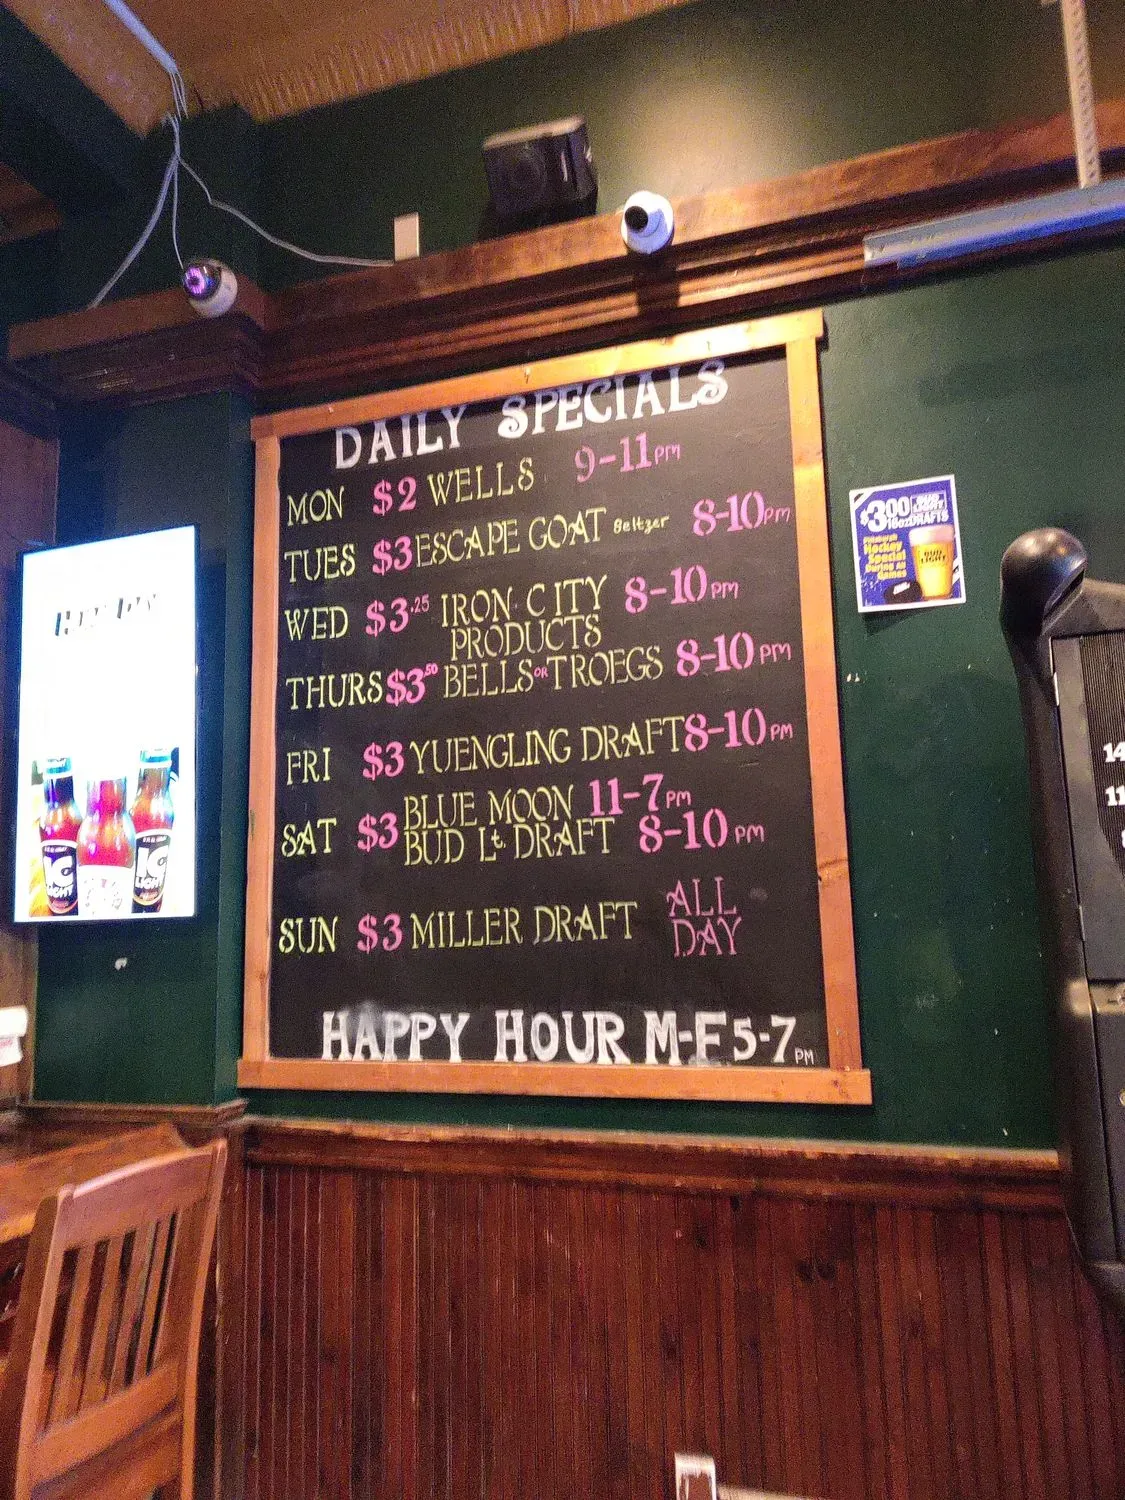 DAILY SPECIALS
MON $2 WELLS 9-11PM
TUES $3 ESCAPE GOAT Seltzer 8-10PM
WED $3.25 IRON CITY 8-10PM
PRODUCTS
THURS $3.50 BELLS OR TROEGS 8-10PM
FRI $3 YUENGLING DRAFT 8-10PM
SAT $3 BLUE MOON 11-7PM
BUD Lt. DRAFT 8-10PM
SUN $3 MILLER DRAFT ALL
DAY
HAPPY HOUR M-F 5-7PM
$3.00 BUD LIGHT
16oz DRAFTS
Pittsburgh
Hockey
Special
During All
Games
BUD
LIGHT
IC
LIGHT
IC
LIGHT
14
11